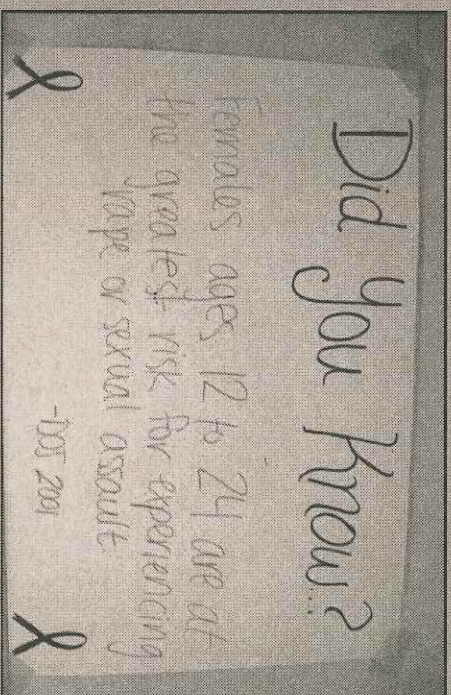 Did you know?...
Females ages 12 to 24 are at
the greatest risk for experiencing
rape or sexual assault.
-DOJ 2001